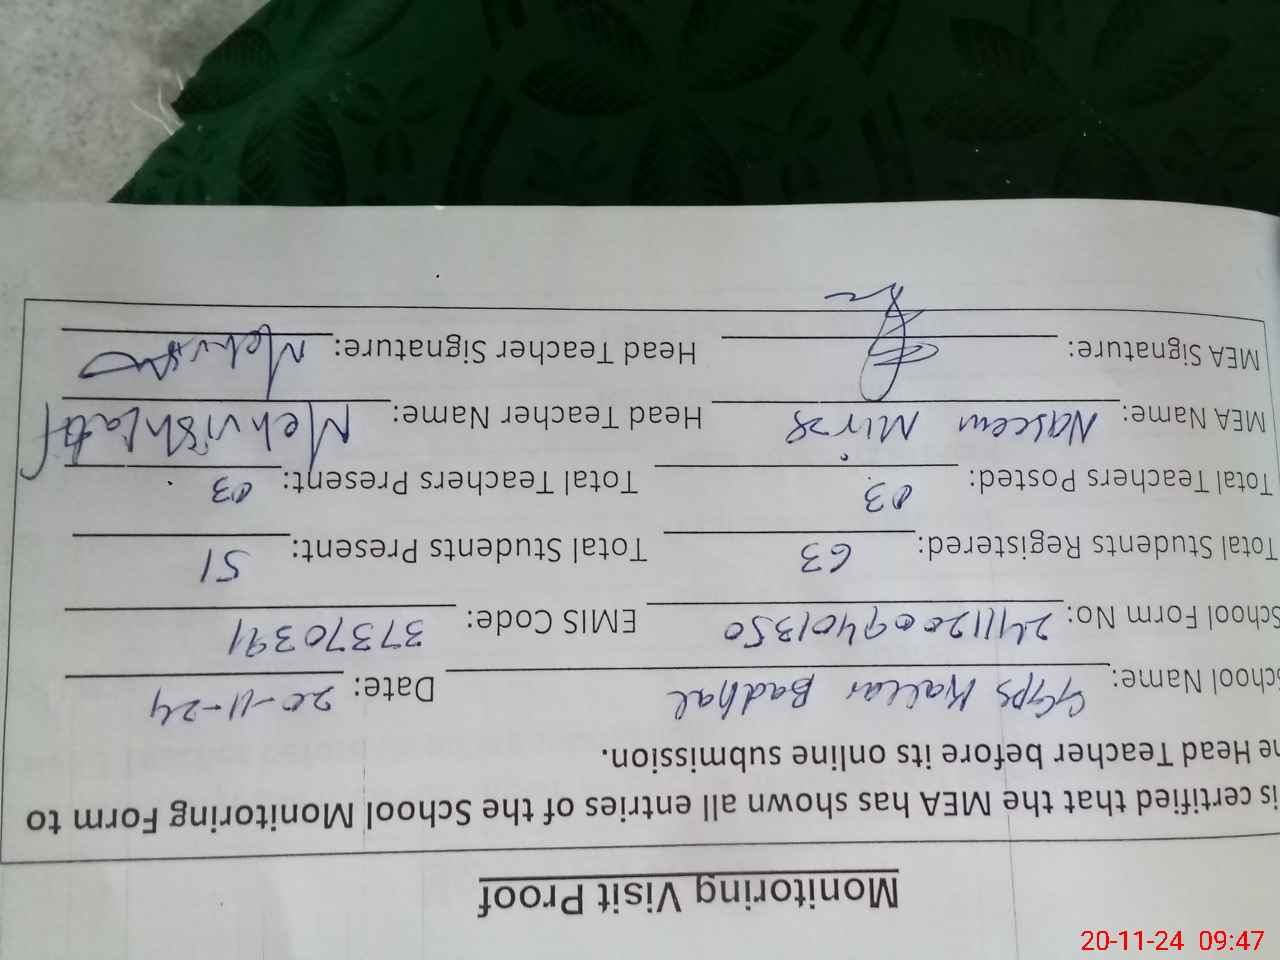 Monitoring Visit Proof
is certified that the MEA has shown all entries of the School Monitoring Form to
he Head Teacher before its online submission.
School Name: GGPS Kallar Badhal Date: 20-11-24
School Form No: 241112009401350 EMIS Code: 37370391
Total Students Registered: 63 Total Students Present: 51
Total Teachers Posted: 03 Total Teachers Present: 03
MEA Name: Naseem Mirza Head Teacher Name: Mehvish Latif
MEA Signature: Head Teacher Signature: Mehvish
20-11-24 09:47